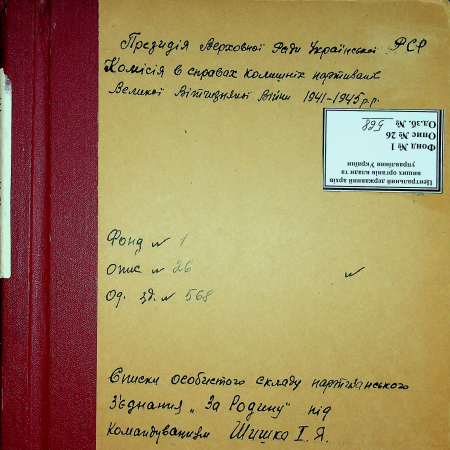 Президія Верховної Ради Української РСР
Комісія в справах колишніх партизанів
Великої Вітчизняної Війни 1941-1945 р.р.
Центральний державний архів
вищих органів влади та
управління України
Фонд № 1
Опис № 26
Од.зб. № 568
Фонд № 1
опис № 26
Од. зб. № 568
Списки особистого складу партизанського
З'єднання „За Родину" під
командуванням Шишка І. Я.